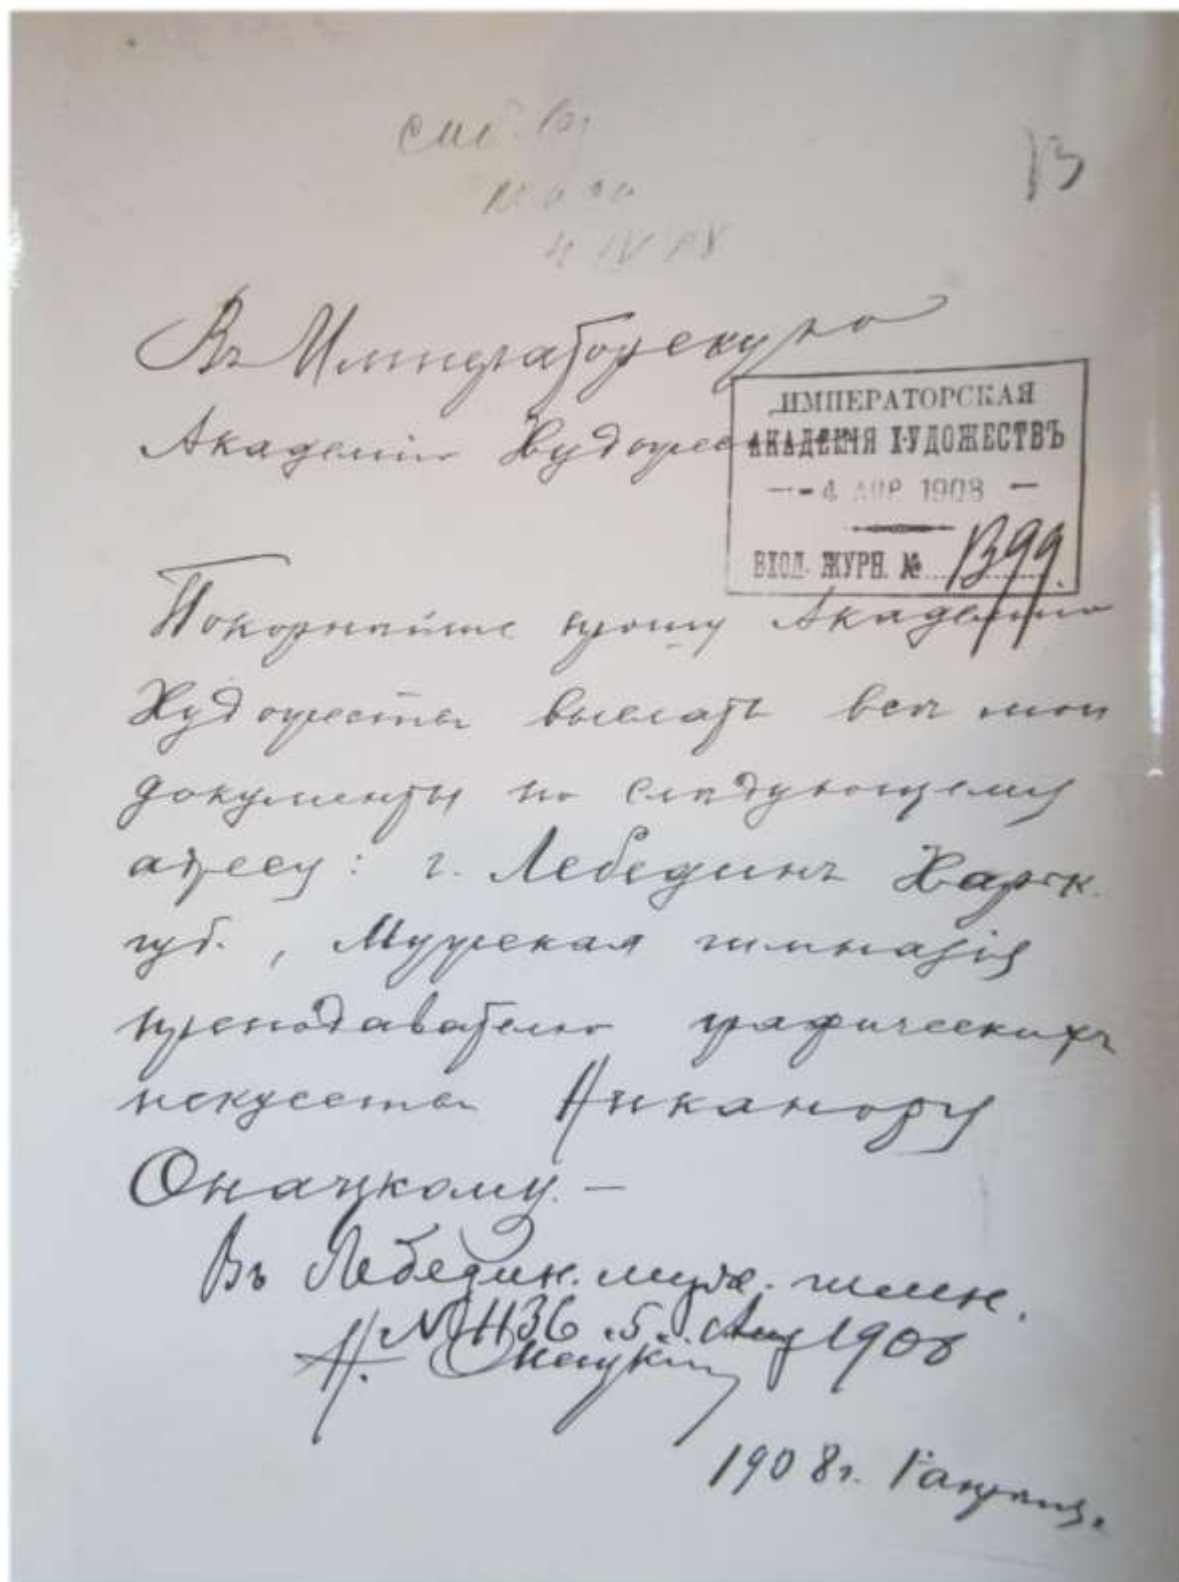 13
Въ Императорскую
Академію Художествъ
ИМПЕРАТОРСКАЯ
АКАДЕМІЯ ХУДОЖЕСТВЪ
4 АПР 1908
ВХОД. ЖУРН. № 1399.
Покорнѣйше прошу Академію
Художествъ выслать всѣ мои
документы по слѣдующему
адресу: г. Лебединъ Харьк.
губ., Мужская гимназія
преподавателю графическихъ
искусствъ Никанору
Онацкому. —
Въ Лебедин. муж. гимн.
№ 1136 5 1908
Н. Онацкій
1908 г. 1 апрѣля.